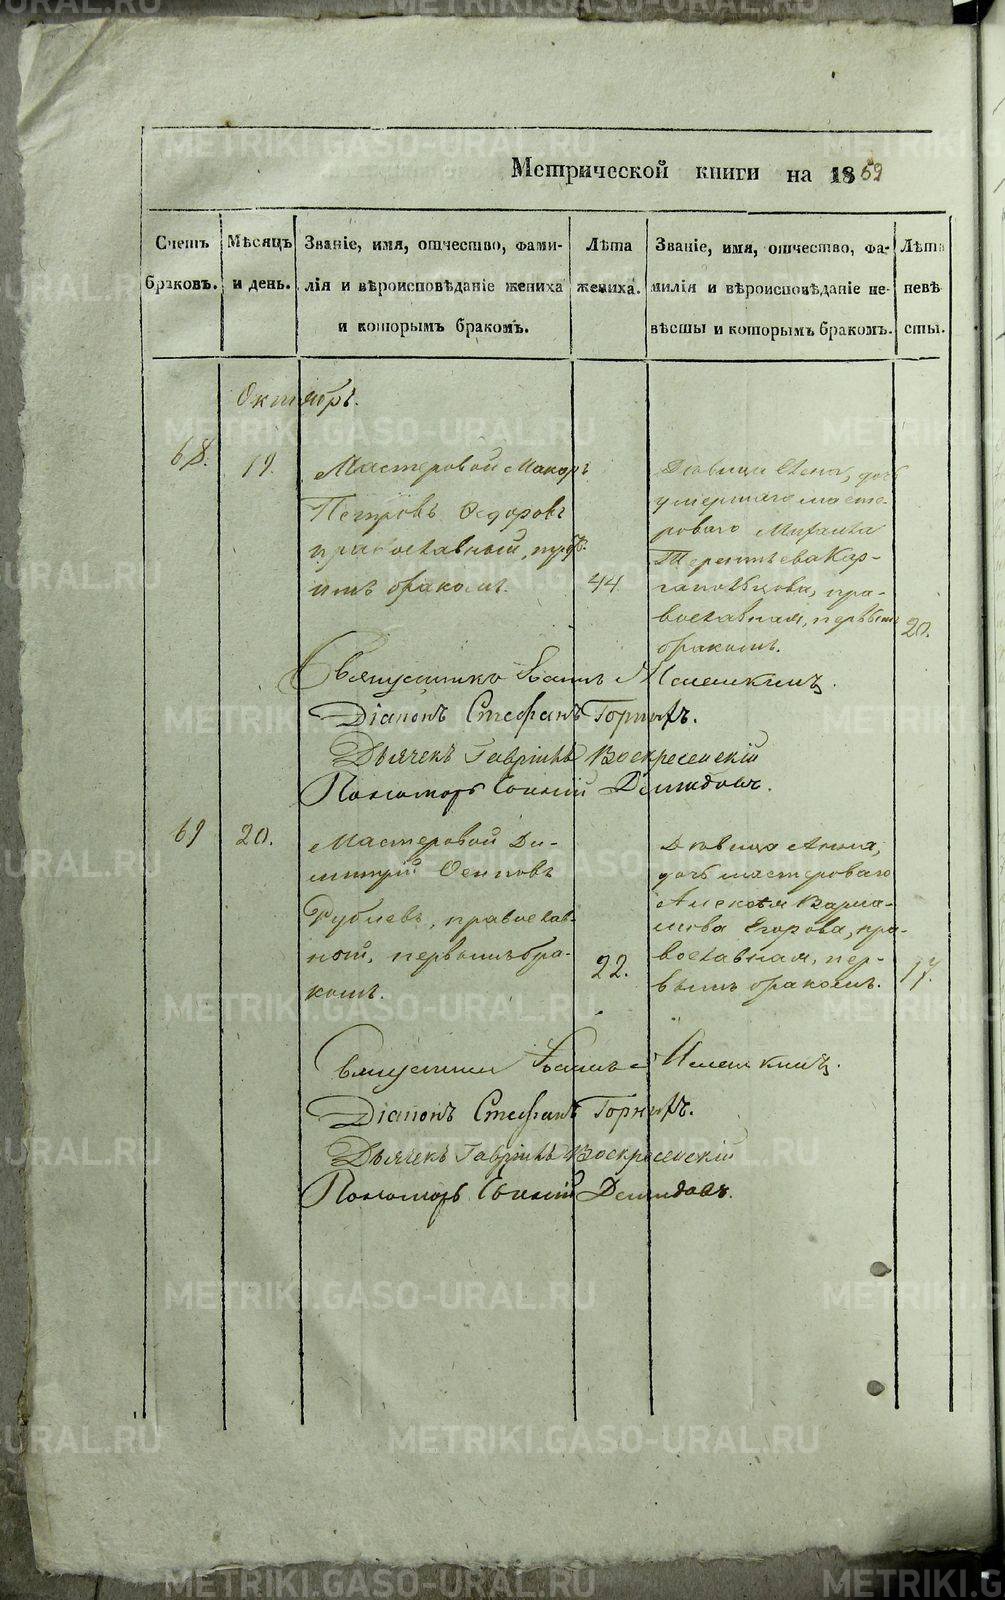 Метрической книги на 1859
Счетъ браковъ.
Мѣсяцъ и день.
Званіе, имя, отчество, фами-
лія и вѣроисповѣданіе жениха
и которымъ бракомъ.
Лѣта жениха.
Званіе, имя, отчество, фа-
милія и вѣроисповѣданіе не-
вѣсты и которымъ бракомъ.
Лѣта невѣ
сты.
Октябрь.
68.
19.
Мастеровой Макаръ
Петровъ Ѳедоровъ
православный,
бракомъ.
44
Дѣвица дочь
умершаго масте-
роваго Михаила
Терентьева Кар-
гапольцова, пра-
вославная, первымъ
бракомъ.
20.
Священникъ Іоаннъ
Діаконъ Стефанъ Горныхъ.
Дьячекъ Гавріилъ Воскресенскій
Пономарь Демидовъ.
69
20.
Мастеровой Ди-
митрій Осиповъ
Рублевъ, православ-
ной, первымъ бра-
комъ.
22.
Дѣвица Анна,
дочь мастероваго
Алексѣя Варла-
мова Егорова, пра-
вославная, пер-
вымъ бракомъ.
17.
Священникъ Іоаннъ
Діаконъ Стефанъ Горныхъ.
Дьячекъ Гавріилъ Воскресенскій
Пономарь Демидовъ.
METRIKI.GASO-URAL.RU